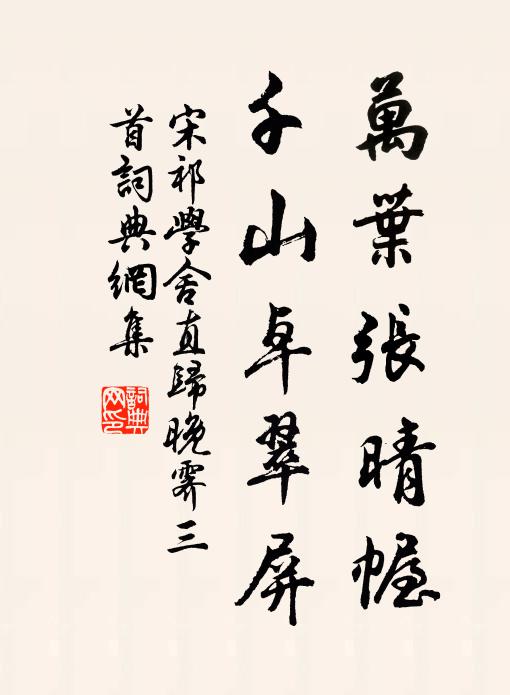 萬葉張晴幄
千山卓翠屏
宋祁學舍直歸晚霽三
首詞典網集
詞典
网印